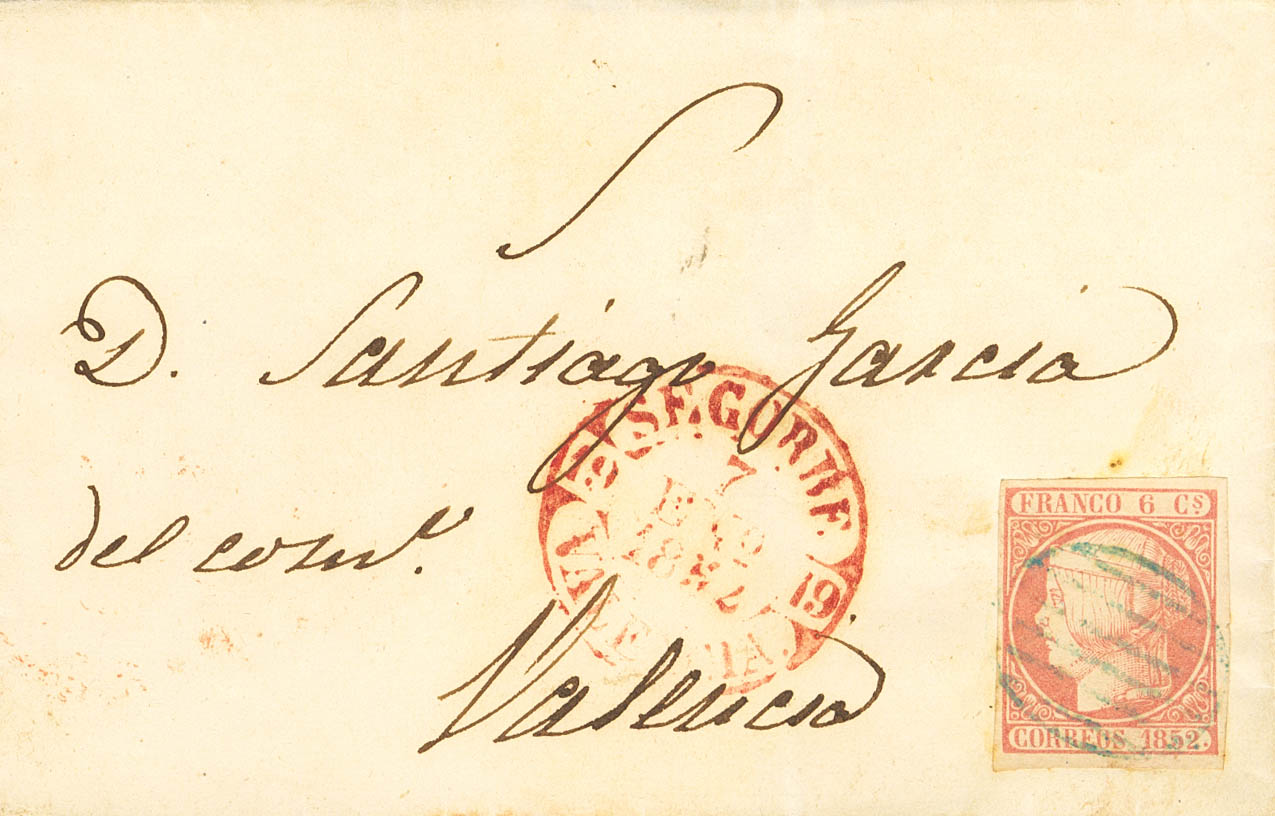 S
D. Santiago Garcia
del comº.
Valencia
SEGORBE
7
ENº
1852
VALENCIA.
9
FRANCO 6 Cs
CORREOS 1852.